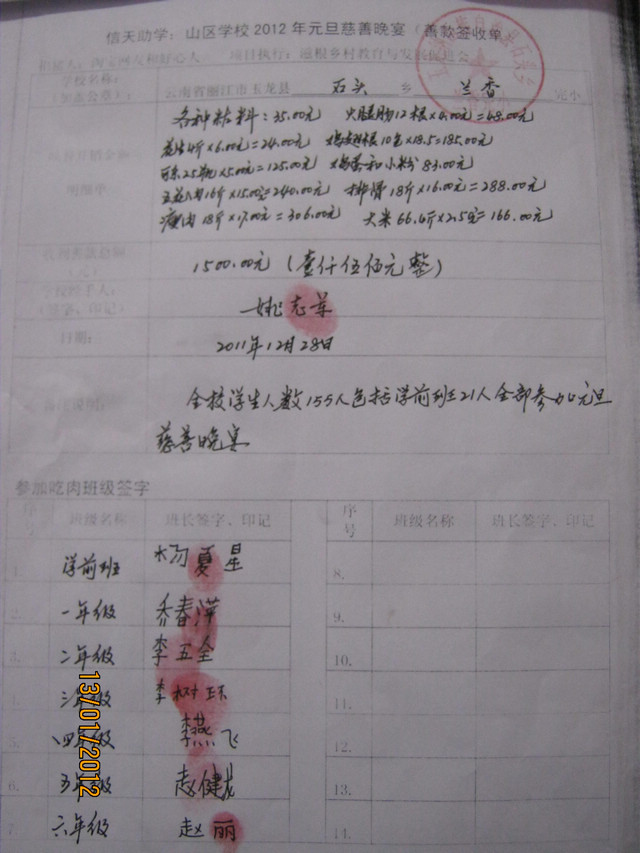 信天助学：山区学校2012年元旦慈善晚宴（善款签收单
捐赠人：淘宝网友和好心人 项目执行：滋根乡村教育与发展促进会
学校名称：
（加盖公章）： 云南省丽江市玉龙县 石头 乡 兰香 完小
各种粘料：35.00元 火腿肠12根×4.00=48.00元
花生4斤×6.00元=24.00元 鸡翅根10包×18.5=185.00元
可乐25瓶×5.00元=125.00元 鸡蛋和小粉83.00元
明细单
五花肉16斤×15.00=240.00元 排骨18斤×16.00元=288.00元
瘦肉18斤×17.00元=306.00元 大米66.4斤×2.5元=166.00元
1500.00元（壹仟伍佰元整）
学校经手人：
（签字、印记）
日期： 2011年12月28日
全校学生人数155人包括学前班21人全部参加元旦
慈善晚宴
参加吃肉班级签字
序号 班级名称 班长签字、印记 序号 班级名称 班长签字、印记
1. 学前班 杨夏星 8.
2. 一年级 乔春萍 9.
3. 二年级 李五全 10.
三年级 李树环 11.
5. 四年级 李燕飞 12.
6. 五年级 赵健龙 13.
7. 六年级 赵丽 14.
13/01/2012